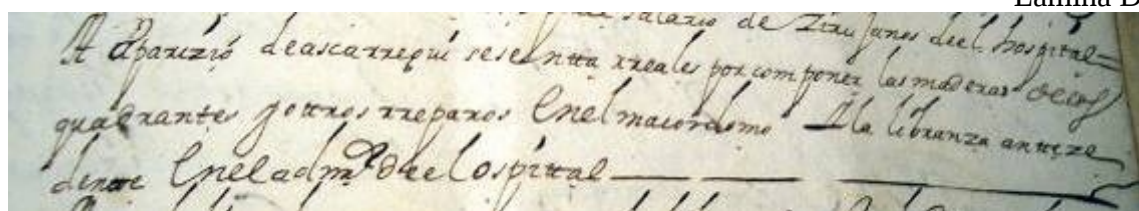 Lamina D
salario de Zirujanos deel hospital=
A Aparizio deascarregui sesentta rreales por componer las maderas de los
quadrantes y ottros rreparos Enel maiordomo — A la libranza anteze
dente Enel adm.or de el ospittal